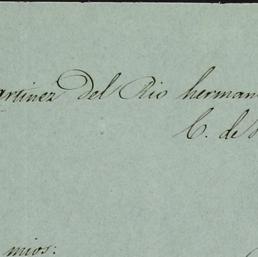 artinez Del Rio herman
C. de
mios: